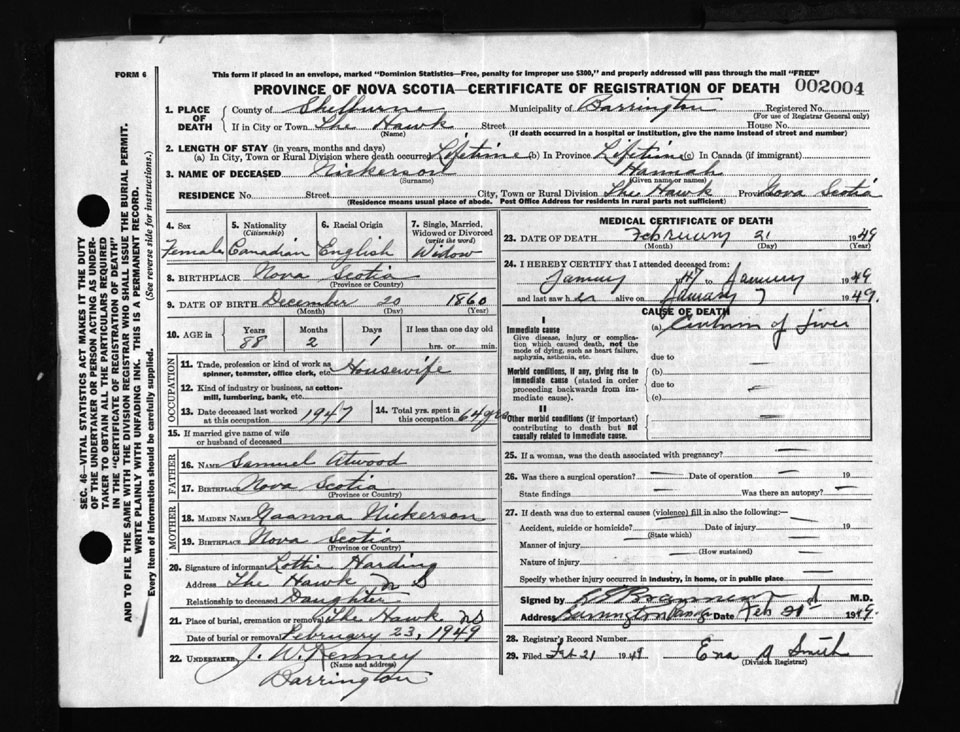 FORM 6
This form if placed in an envelope, marked "Dominion Statistics—Free, penalty for improper use $300," and properly addressed will pass through the mail "FREE"
PROVINCE OF NOVA SCOTIA—CERTIFICATE OF REGISTRATION OF DEATH 002004
1. PLACE OF DEATH County of Shelburne Municipality of Barrington Registered No.
(For use of Registrar General only)
If in City or Town The Hawk Street House No.
(Name) (If death occurred in a hospital or institution, give the name instead of street and number)
2. LENGTH OF STAY (in years, months and days)
(a) In City, Town or Rural Division where death occurred Lifetime (b) In Province Lifetime (c) In Canada (if immigrant)
3. NAME OF DECEASED Nickerson Hannah
(Surname) (Given name or names)
RESIDENCE No. Street City, Town or Rural Division The Hawk Province Nova Scotia
(Residence means usual place of abode. Post Office Address for residents in rural parts not sufficient)
4. Sex 5. Nationality (Citizenship) 6. Racial Origin 7. Single, Married, Widowed or Divorced (write the word)
Female Canadian English Widow
8. BIRTHPLACE Nova Scotia
(Province or Country)
9. DATE OF BIRTH December 20 1860
(Month) (Day) (Year)
10. AGE in Years Months Days If less than one day old
88 2 1 hrs. or min.
OCCUPATION
11. Trade, profession or kind of work as spinner, teamster, office clerk, etc. Housewife
12. Kind of industry or business, as cotton-mill, lumbering, bank, etc.
13. Date deceased last worked at this occupation 1947 14. Total yrs. spent in this occupation 64 yrs
15. If married give name of wife or husband of deceased
FATHER
16. NAME Samuel Atwood
17. BIRTHPLACE Nova Scotia
(Province or Country)
MOTHER
18. MAIDEN NAME Naanna Nickerson
19. BIRTHPLACE Nova Scotia
(Province or Country)
20. Signature of informant Lottie Harding
Address The Hawk N S
Relationship to deceased Daughter
21. Place of burial, cremation or removal The Hawk NS
Date of burial or removal February 23, 1949
22. UNDERTAKER J. W. Kenney
(Name and address)
Barrington
MEDICAL CERTIFICATE OF DEATH
23. DATE OF DEATH February 21 1949
(Month) (Day) (Year)
24. I HEREBY CERTIFY that I attended deceased from:
January 1947 to January 1949
and last saw her alive on January 7 1949.
CAUSE OF DEATH
I
Immediate cause (a) Cirrhosis of Liver
Give disease, injury or complication which caused death, not the mode of dying, such as heart failure, asphyxia, asthenia, etc.
due to
Morbid conditions, if any, giving rise to immediate cause (stated in order proceeding backwards from immediate cause). (b)
due to
(c)
II
Other morbid conditions (if important) contributing to death but not causally related to immediate cause.
25. If a woman, was the death associated with pregnancy?
26. Was there a surgical operation? Date of operation 19
State findings Was there an autopsy?
27. If death was due to external causes (violence) fill in also the following:—
Accident, suicide or homicide? Date of injury 19
(State which)
Manner of injury
(How sustained)
Nature of injury
Specify whether injury occurred in industry, in home, or in public place
Signed by M.D.
Address Barrington Date Feb 21st 1949.
28. Registrar's Record Number
29. Filed Feb 21 1949 Ena A Smith
(Division Registrar)
SEC. 46—VITAL STATISTICS ACT MAKES IT THE DUTY
OF THE UNDERTAKER OR PERSON ACTING AS UNDER-
TAKER TO OBTAIN ALL THE PARTICULARS REQUIRED
IN THE "CERTIFICATE OF REGISTRATION OF DEATH"
AND TO FILE THE SAME WITH THE DIVISION REGISTRAR WHO SHALL ISSUE THE BURIAL PERMIT.
WRITE PLAINLY WITH UNFADING INK. THIS IS A PERMANENT RECORD.
Every item of information should be carefully supplied. (See reverse side for instructions.)